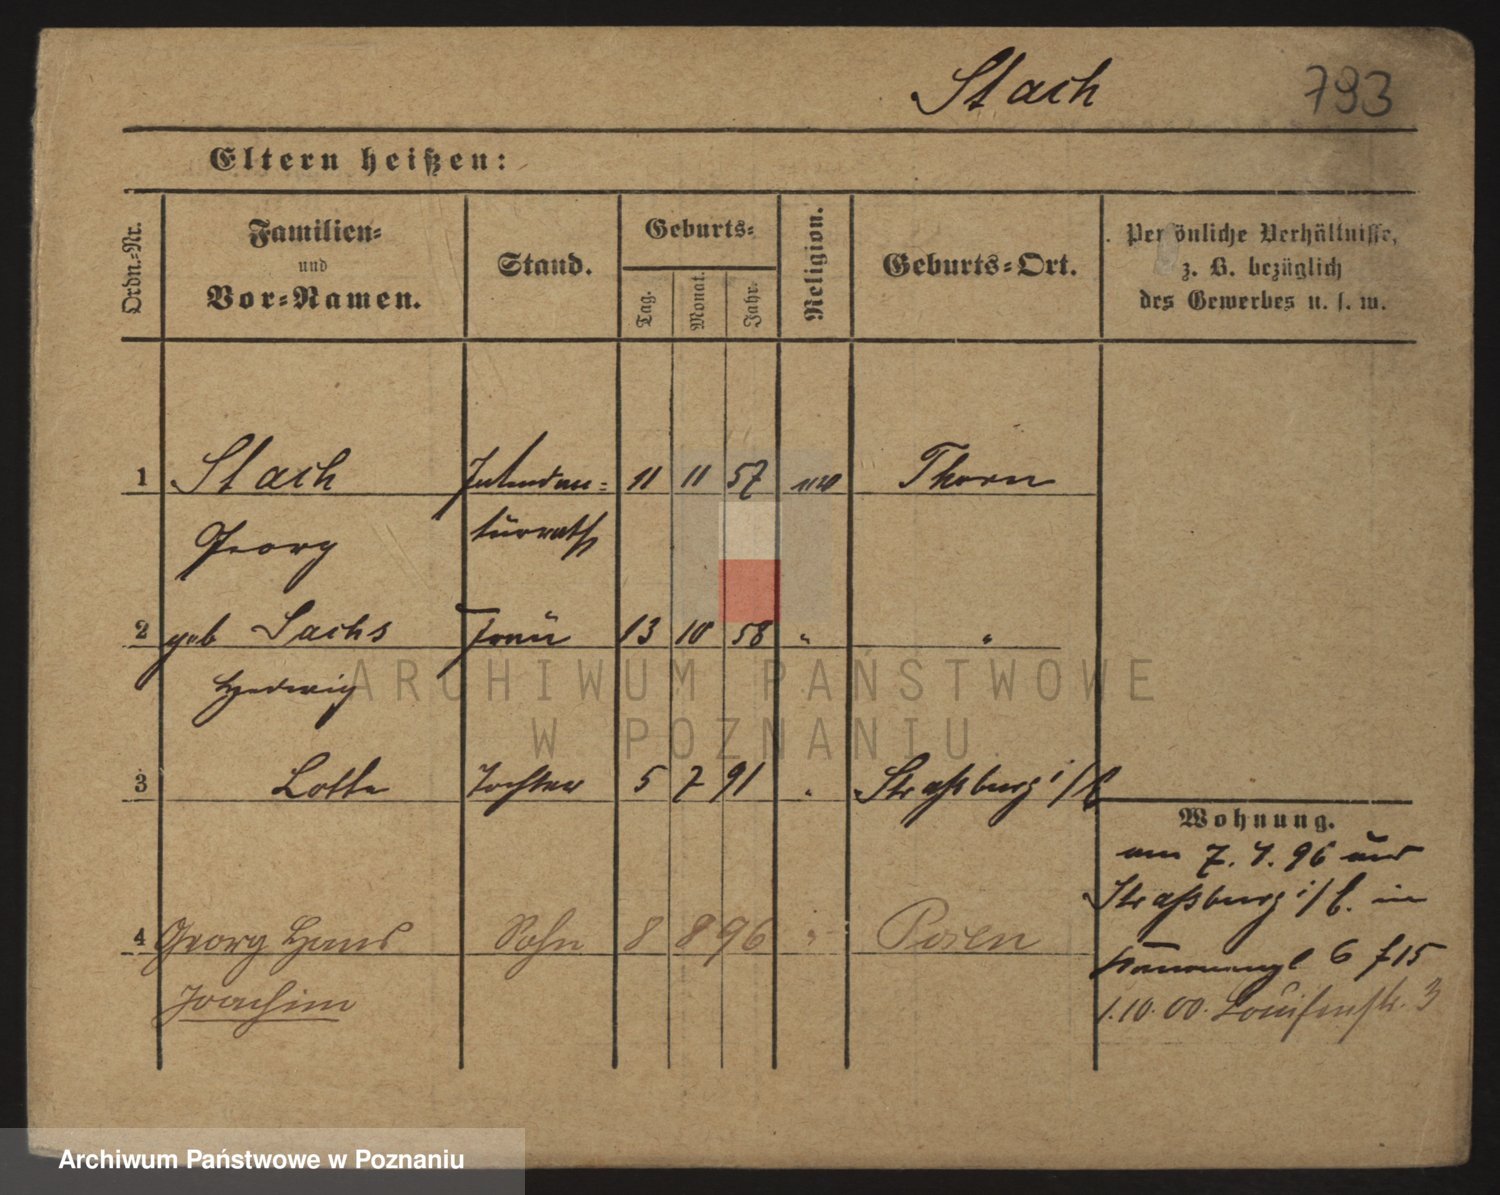 Stach 793
Eltern heißen:
Ordn.=Nr.
Familien=
und
Vor=Namen.
Stand.
Geburts=
Tag.
Monat.
Jahr.
Religion.
Geburts=Ort.
Persönliche Verhältnisse,
z. B. bezüglich
des Gewerbes u. s. w.
1 Stach Intendan= 11 11 57 Thorn
Georg türrath
2 geb Sachs Frau 13 10 58 " "
Hedwig
ARCHIWUM PAŃSTWOWE
W POZNANIU
3 Lotte Tochter 5 7 91 " Straßburg i/E
Wohnung.
am 7. 4. 96 aus
Straßburg i/E. in
4 Georg Hans Sohn 8 8 96 " Posen
6 f 15
Joachim
1.10.00. Louisenstr. 3
Archiwum Państwowe w Poznaniu